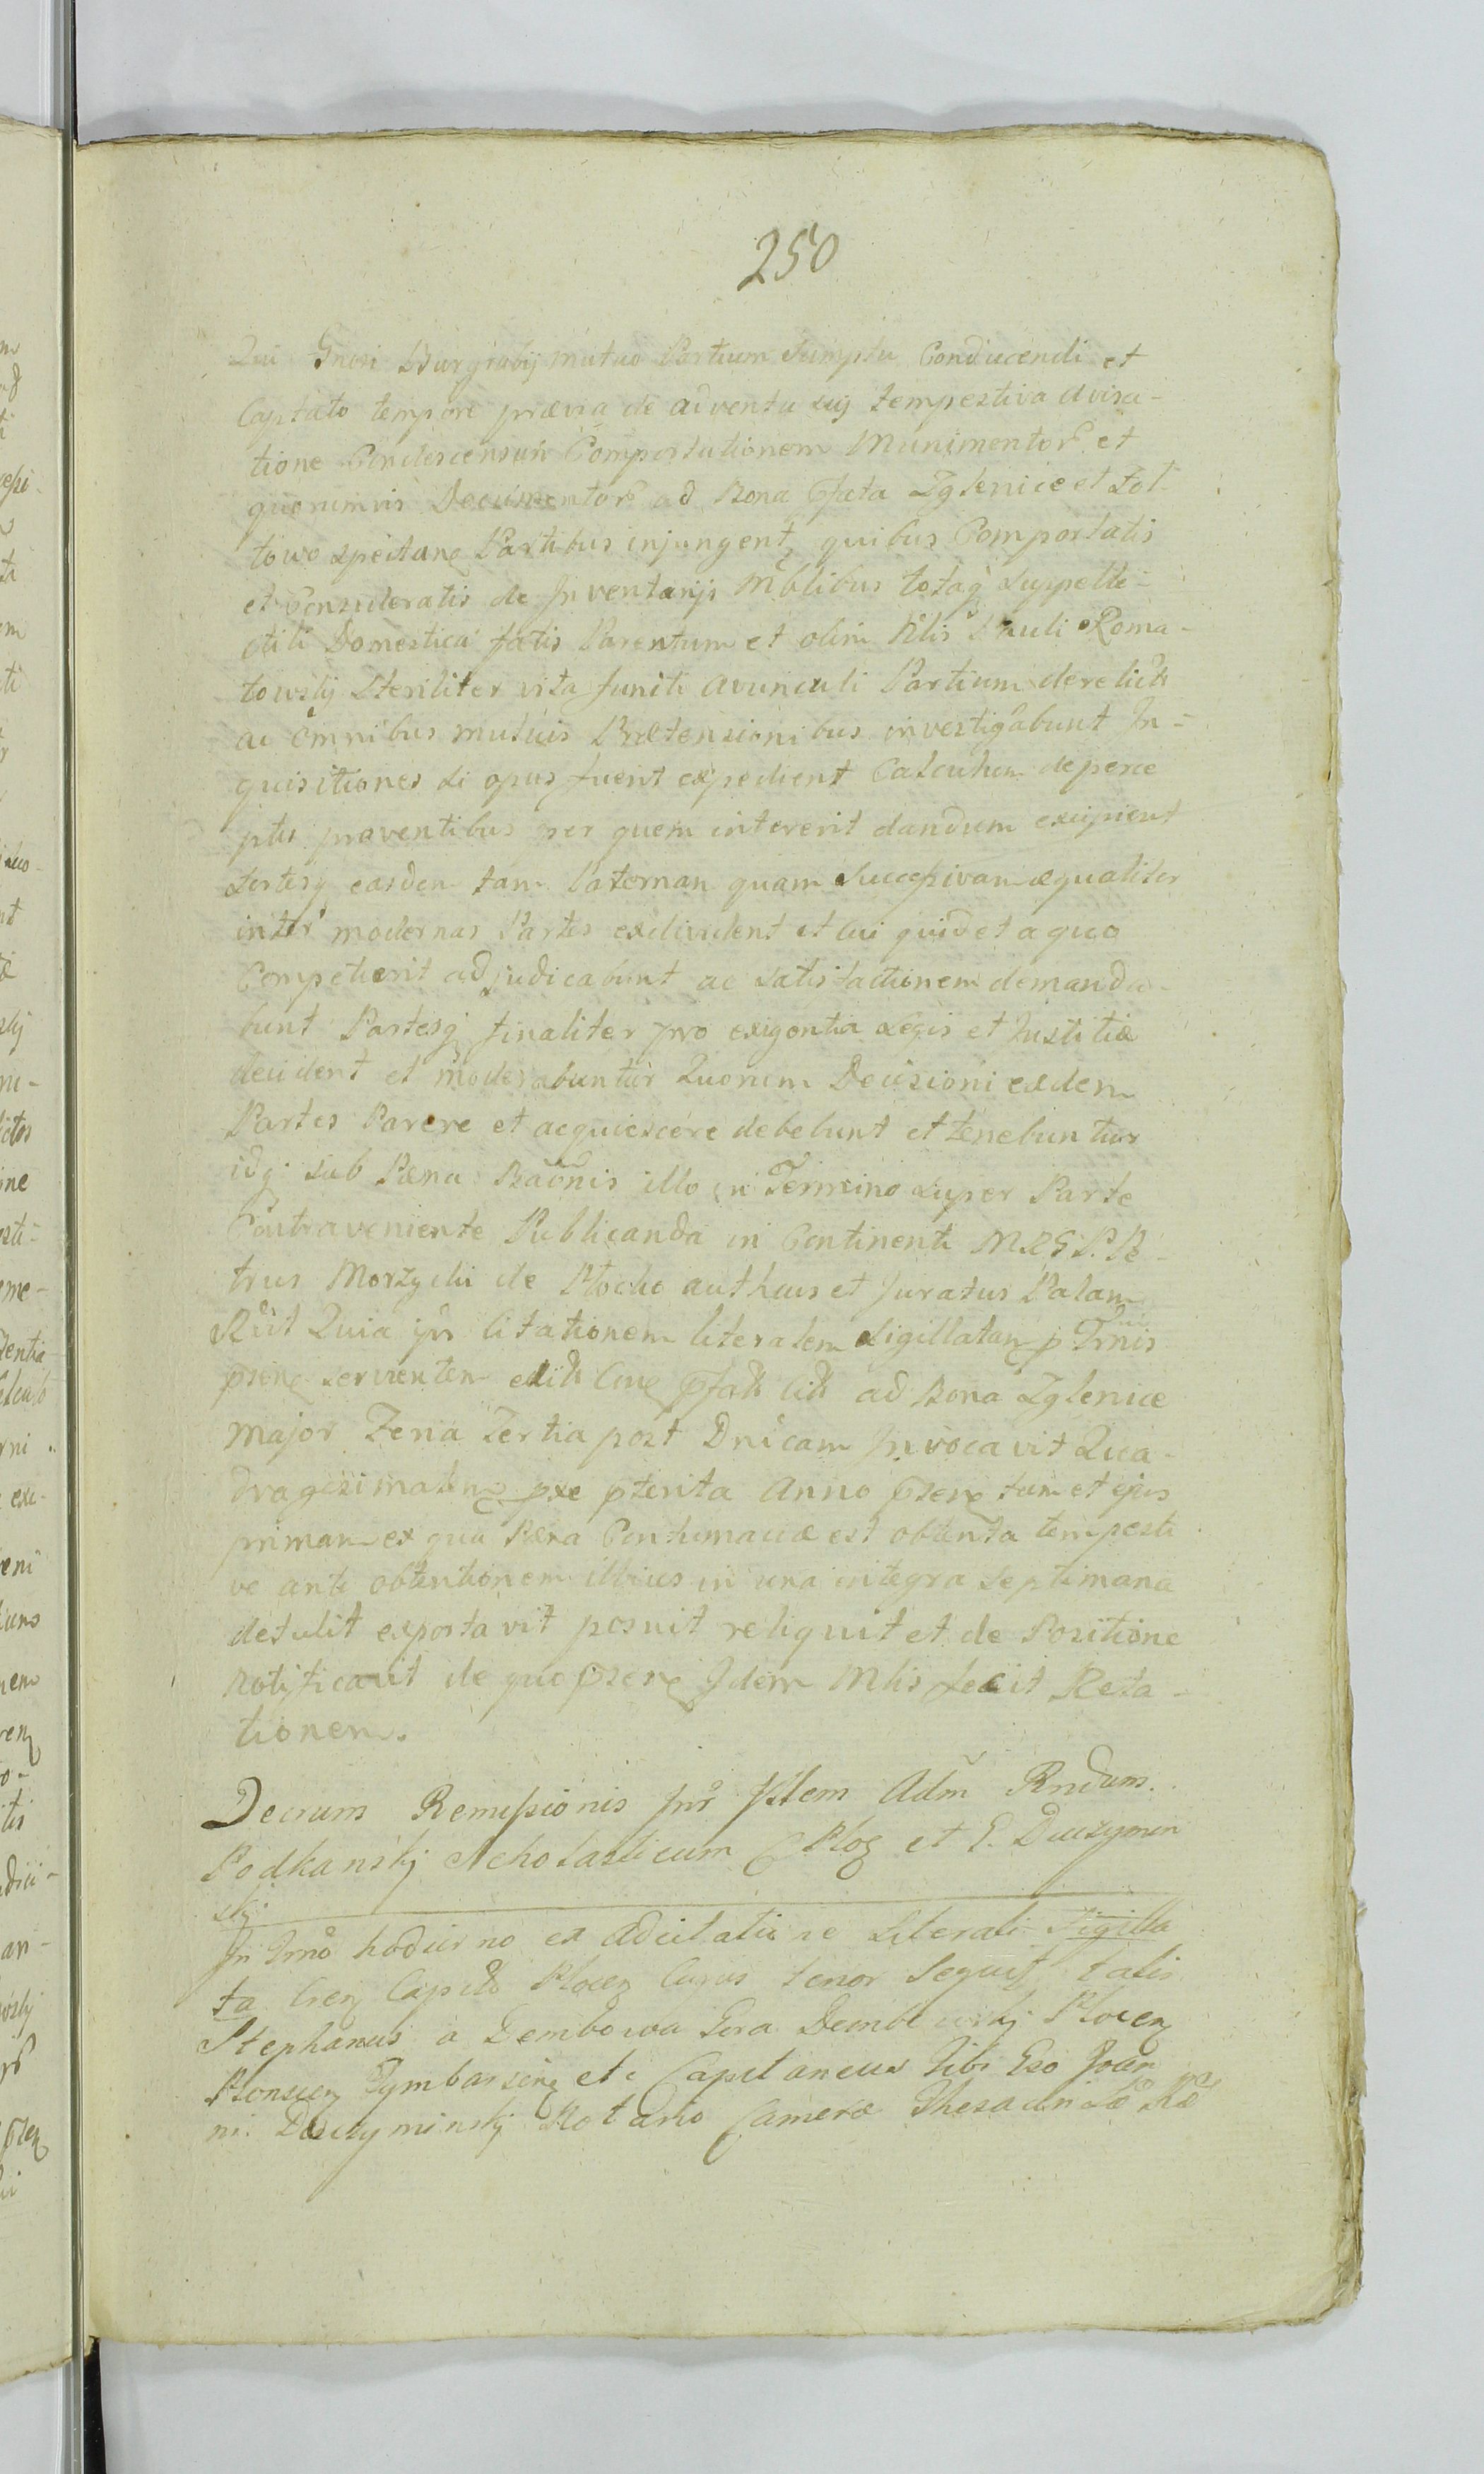 250
Qui Gnosi Burgrabij mutuo Partium Sumptu Conducendi et
Captato tempore prævia de adventu suj tempestiva avisa-
tione Condescensuri Comportationem Munimentor et
quorumvis Documentor ad Bona Pfata Zglenice et Zol-
towo spectan Partibus injungent, quibus Comportatis
et Consideratis de Inventarijs Mblibus totaq Suppelle-
ctili Domestica fatis Parentum et olim Nlis Pauli Roma-
towskij Steriliter vita functi Avunculi Partium derelicta
ac omnibus mutuis Prætensionibus investigabunt In-
quisitiones si opus fuerit expedient Calculum de perce
ptis proventibus per quem intererit dandum excipient
Sortesq easdem tam Paternam quam Successivam æqualiter
inter modernas Partes exdivident et cui quid et a quo
Competierit adjudicabunt ac satisfactionem demanda-
bunt Partesq finaliter pro exigentia Legis et Justitiæ
decident et moderabuntur Quorum Decisioni eædem
Partes Parere et acquiescere debebunt et tenebuntur
idq sub Pæna Baonis illo in Termino super Parte
Contraveniente Publicanda in Continenti MRGPP. Pe-
trus Morzycki de Plocko authcus et Juratus Palam
Rcit Quia ipse Citationem literalem Sigillatam p Trnis
psen servientem
ad Bona Zglenice
Major Feria Tertia post Dnicam Invocavit Qua-
dragesimalem pxe pterita Anno psen tum et ejus
primam ex qua Pæna Contumaciæ est obtenta tempesti
ve ante obtentionem illius in una integra Septimana
detulit exportavit posuit reliquit et de Positione
notificavit de quo psen Idem Mlis fecit Rela-
tionem.
Decrum Remissionis Inr Illem Adm Rndum
Podkanskj Scholasticum Ploc et G. Duczymin
skj
In Trno hodierno ex Adcitatione Literali Sigilla
ta Cren Capitli Plocen Cujus tenor Sequit talis
Stephanus a Dembowa Gora Dembowskj Plocen
Plonscen Tymbarscen etc Capitaneus Tibi Gso Joan
ni Duczyminskj Notario Cameræ Thesauri